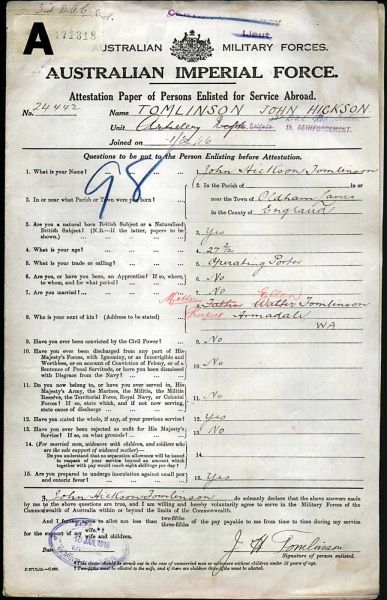 A
171318
Lieut.
AUSTRALIAN MILITARY FORCES.
AUSTRALIAN IMPERIAL FORCE.
Attestation Paper of Persons Enlisted for Service Abroad.
No. 24442 Name TOMLINSON JOHN HICKSON
Unit Artillery
REINFORCEMENT.
Joined on
Questions to be put to the Person Enlisting before Attestation.
98
1. What is your Name? 1. John Hickson Tomlinson
2. In or near what Parish or Town were you born? 2. In the Parish of in or
near the Town of Oldham Lancs
in the County of England
3. Are you a natural born British Subject or a Naturalized
British Subject? (N.B.—If the latter, papers to be
shown.) 3. Yes
4. What is your age? 4. 27
5. What is your trade or calling? 5. Operating Porter
6. Are you, or have you been, an Apprentice? If so, where,
to whom, and for what period? 6. No
7. Are you married? 7. No
8. Who is your next of kin? (Address to be stated) 8. Mother Ellen
Father Walter Tomlinson
Armadale
WA
9. Have you ever been convicted by the Civil Power? 9. No
10. Have you ever been discharged from any part of His
Majesty's Forces, with Ignominy, or as Incorrigible and
Worthless, or on account of Conviction of Felony, or of a
Sentence of Penal Servitude, or have you been dismissed
with Disgrace from the Navy? 10. No
11. Do you now belong to, or have you ever served in, His
Majesty's Army, the Marines, the Militia, the Militia
Reserve, the Territorial Force, Royal Navy, or Colonial
Forces? If so, state which, and if not now serving,
state cause of discharge 11. No
12. Have you stated the whole, if any, of your previous service? 12. Yes
13. Have you ever been rejected as unfit for His Majesty's
Service? If so, on what grounds? 13. No
14. (For married men, widowers with children, and soldiers who
are the sole support of widowed mother)—
Do you understand that no separation allowance will be issued
in respect of your service beyond an amount which
together with pay would reach eight shillings per day? 14.
15. Are you prepared to undergo inoculation against small pox
and enteric fever? 15. Yes
I, John Hickson Tomlinson do solemnly declare that the above answers made
by me to the above questions are true, and I am willing and hereby voluntarily agree to serve in the Military Forces of the
Commonwealth of Australia within or beyond the limits of the Commonwealth.
And I further agree to allot not less than two-fifths
three-fifths of the pay payable to me from time to time during my service
for the support of my wife
and children
Date
J H Tomlinson
Signature of person enlisted.